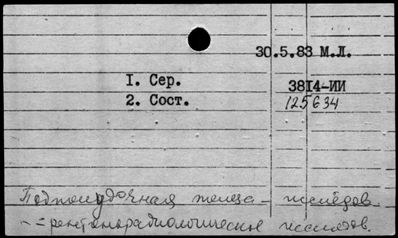 30.5.83 М.Л.
1. Сер. 3814-ИИ
2. Сост. 125634
Поджелудочная железа - исследов.
- рентгенорадиологические исследов.